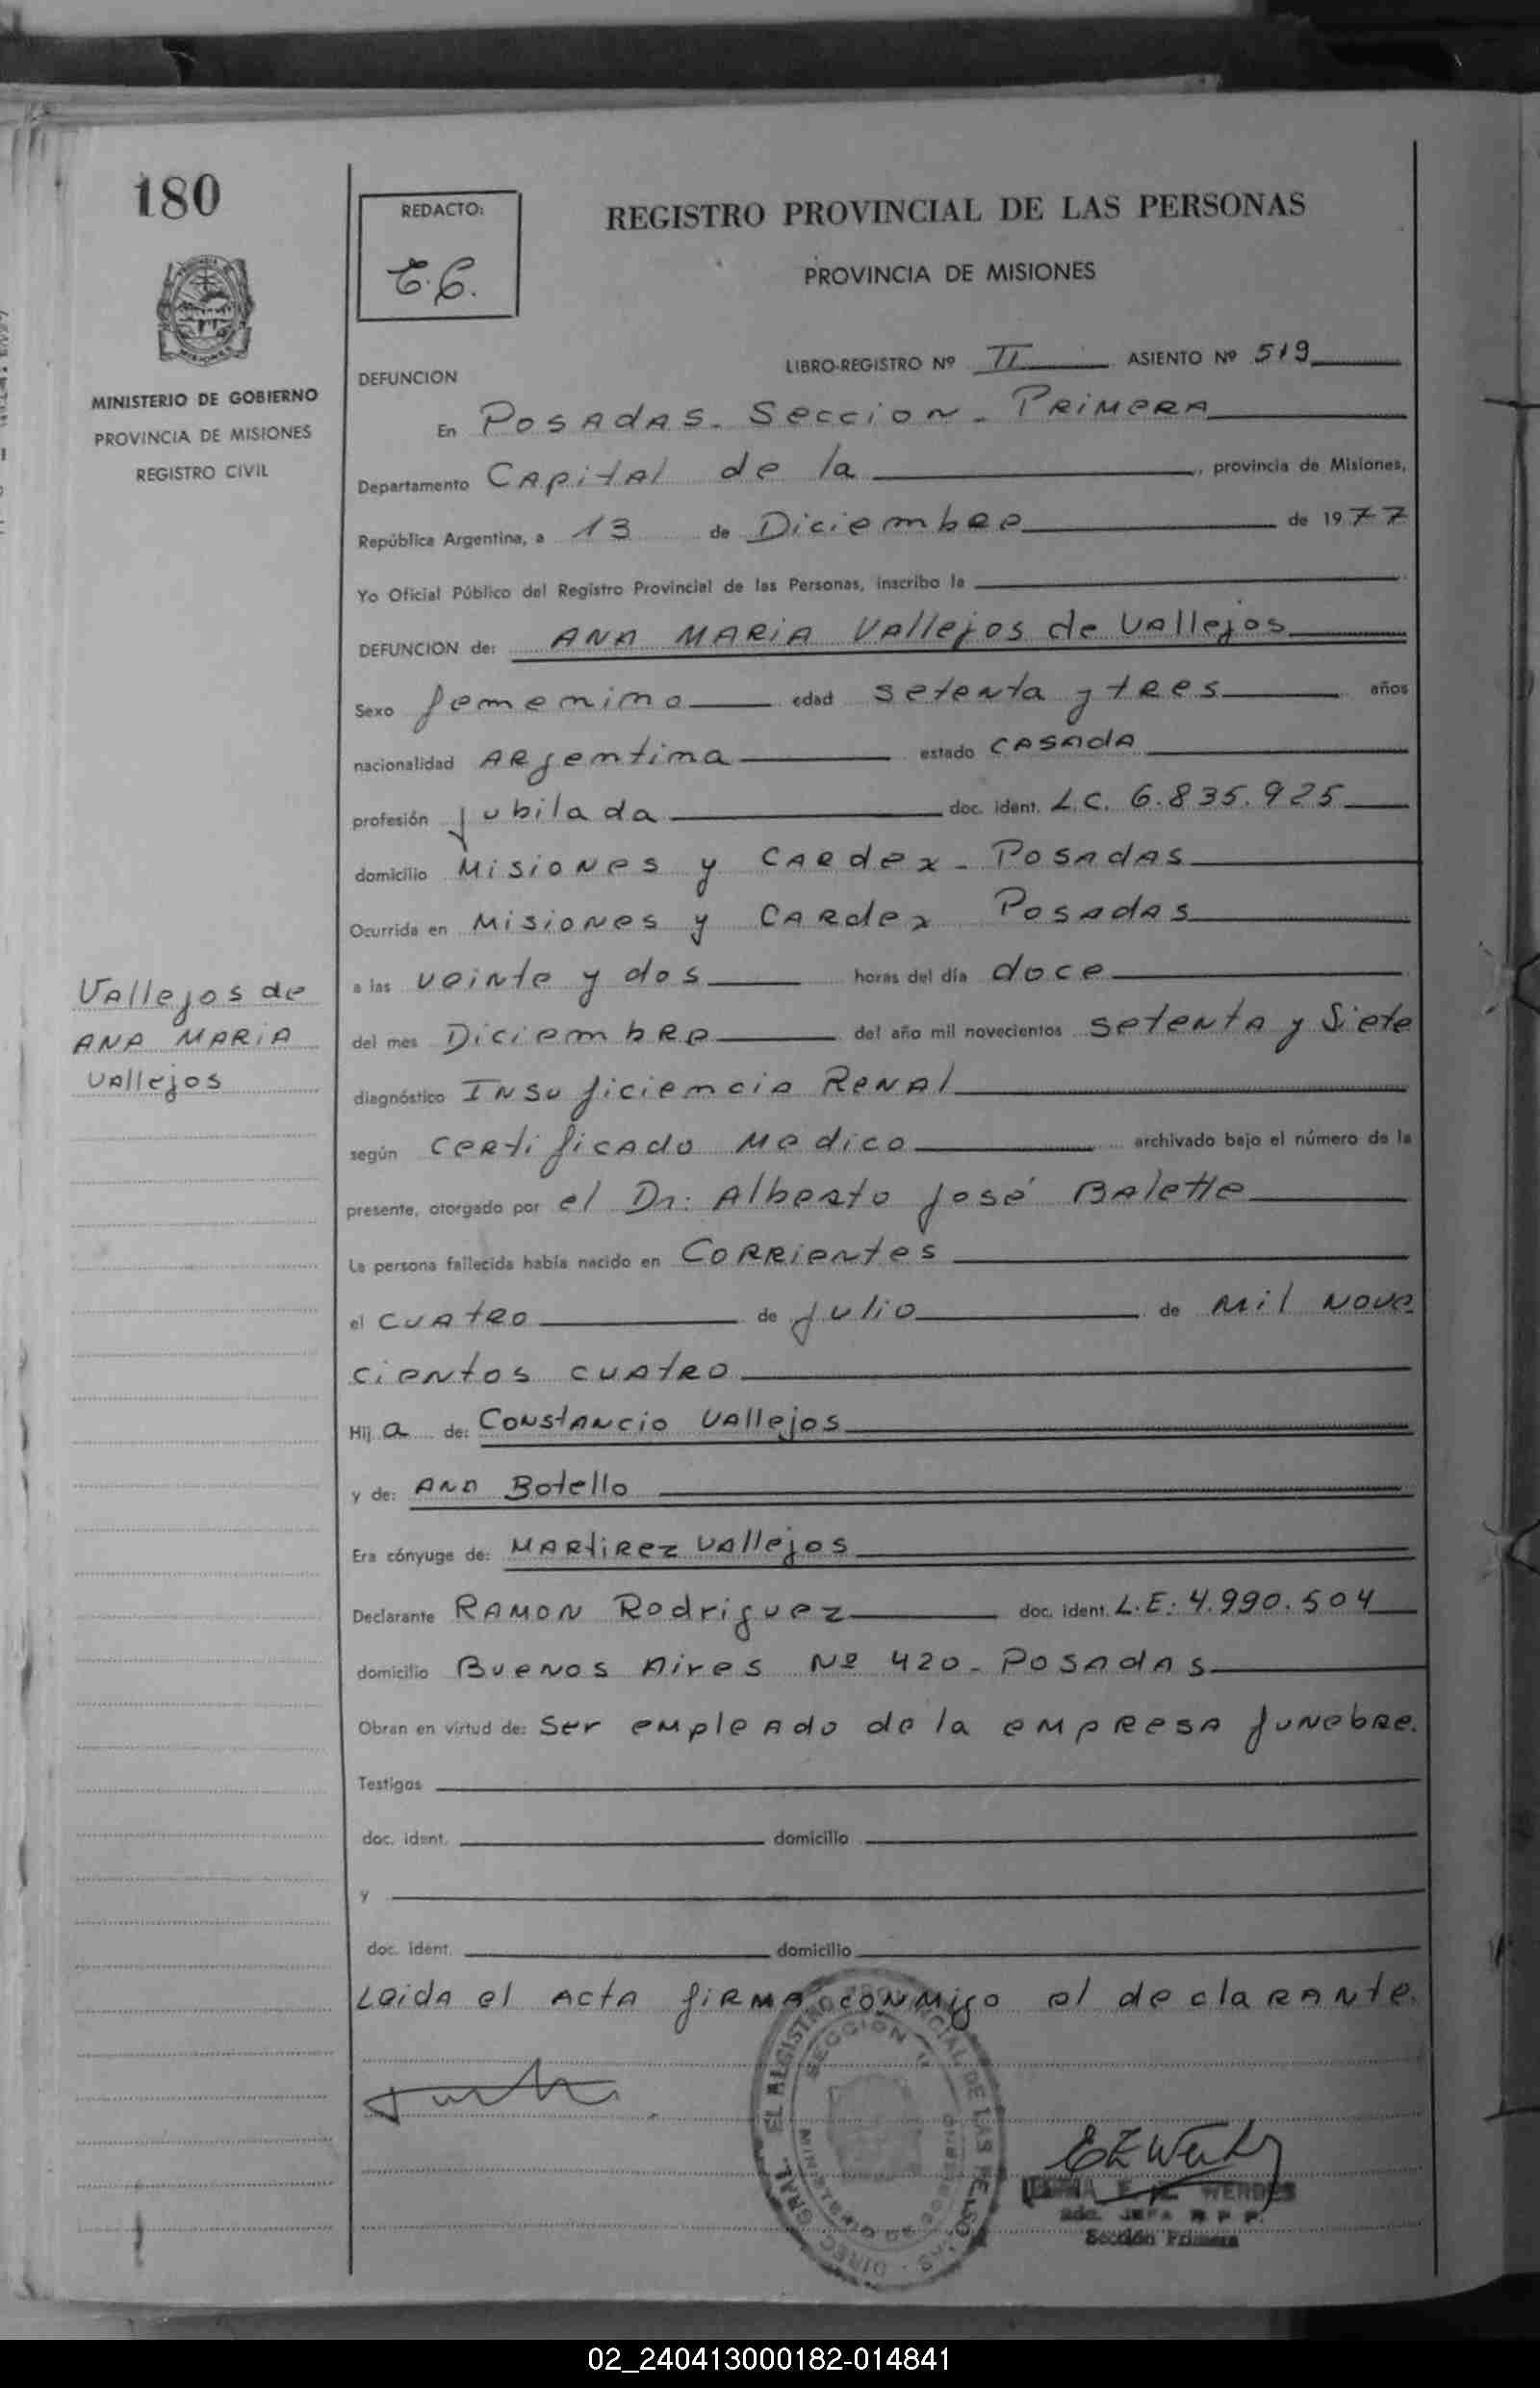 180
REDACTO:
REGISTRO PROVINCIAL DE LAS PERSONAS
PROVINCIA DE MISIONES
MISIONES
MINISTERIO DE GOBIERNO
PROVINCIA DE MISIONES
REGISTRO CIVIL
DEFUNCION
LIBRO-REGISTRO Nº II ASIENTO Nº 519
En Posadas. Seccion - Primera
Departamento Capital de la, provincia de Misiones,
República Argentina, a 13 de Diciembre de 1977
Yo Oficial Público del Registro Provincial de las Personas, inscribo la
DEFUNCION de: ANA MARIA Vallejos de Vallejos
Sexo femenino edad setenta y tres años
nacionalidad Argentina estado casada
profesión jubilada doc. ident. L.C. 6.835.925
domicilio Misiones y Cardex - Posadas
Ocurrida en Misiones y Cardex Posadas
a las veinte y dos horas del día doce
del mes Diciembre del año mil novecientos setenta y Siete
diagnóstico Insuficiencia Renal
según certificado Medico archivado bajo el número de la
presente, otorgado por el Dr: Alberto José Balette
La persona fallecida había nacido en Corrientes
el cuatro de julio de mil nove
cientos cuatro
Hij a de: Constancio Vallejos
y de: Ana Botello
Era cónyuge de: Martirez Vallejos
Declarante Ramon Rodriguez doc. ident. L.E: 4.990.504
domicilio Buenos Aires Nº 420 - Posadas
Obran en virtud de: Ser empleado de la empresa funebre.
Testigos
doc. ident. domicilio
y
doc. ident. domicilio
Leida el acta firma conmigo el declarante.
Vallejos de
ANA MARIA
Vallejos
SECCION
WERDES
JEFA R P P.
Sección Primera
02_240413000182-014841